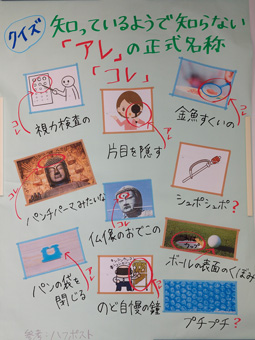 クイズ
知っているようで知らない
「アレ」の正式名称
「コレ」
コレ
視力検査の
アレ
片目を隠す
コレ
金魚すくいの
コレ
パンチパーマみたいな
コレ
仏像のおでこの
シュポシュポ?
アレ
パンの袋を
閉じる
のど自慢の鐘
ボールの表面のくぼみ
プチプチ?
参考：ハフポスト